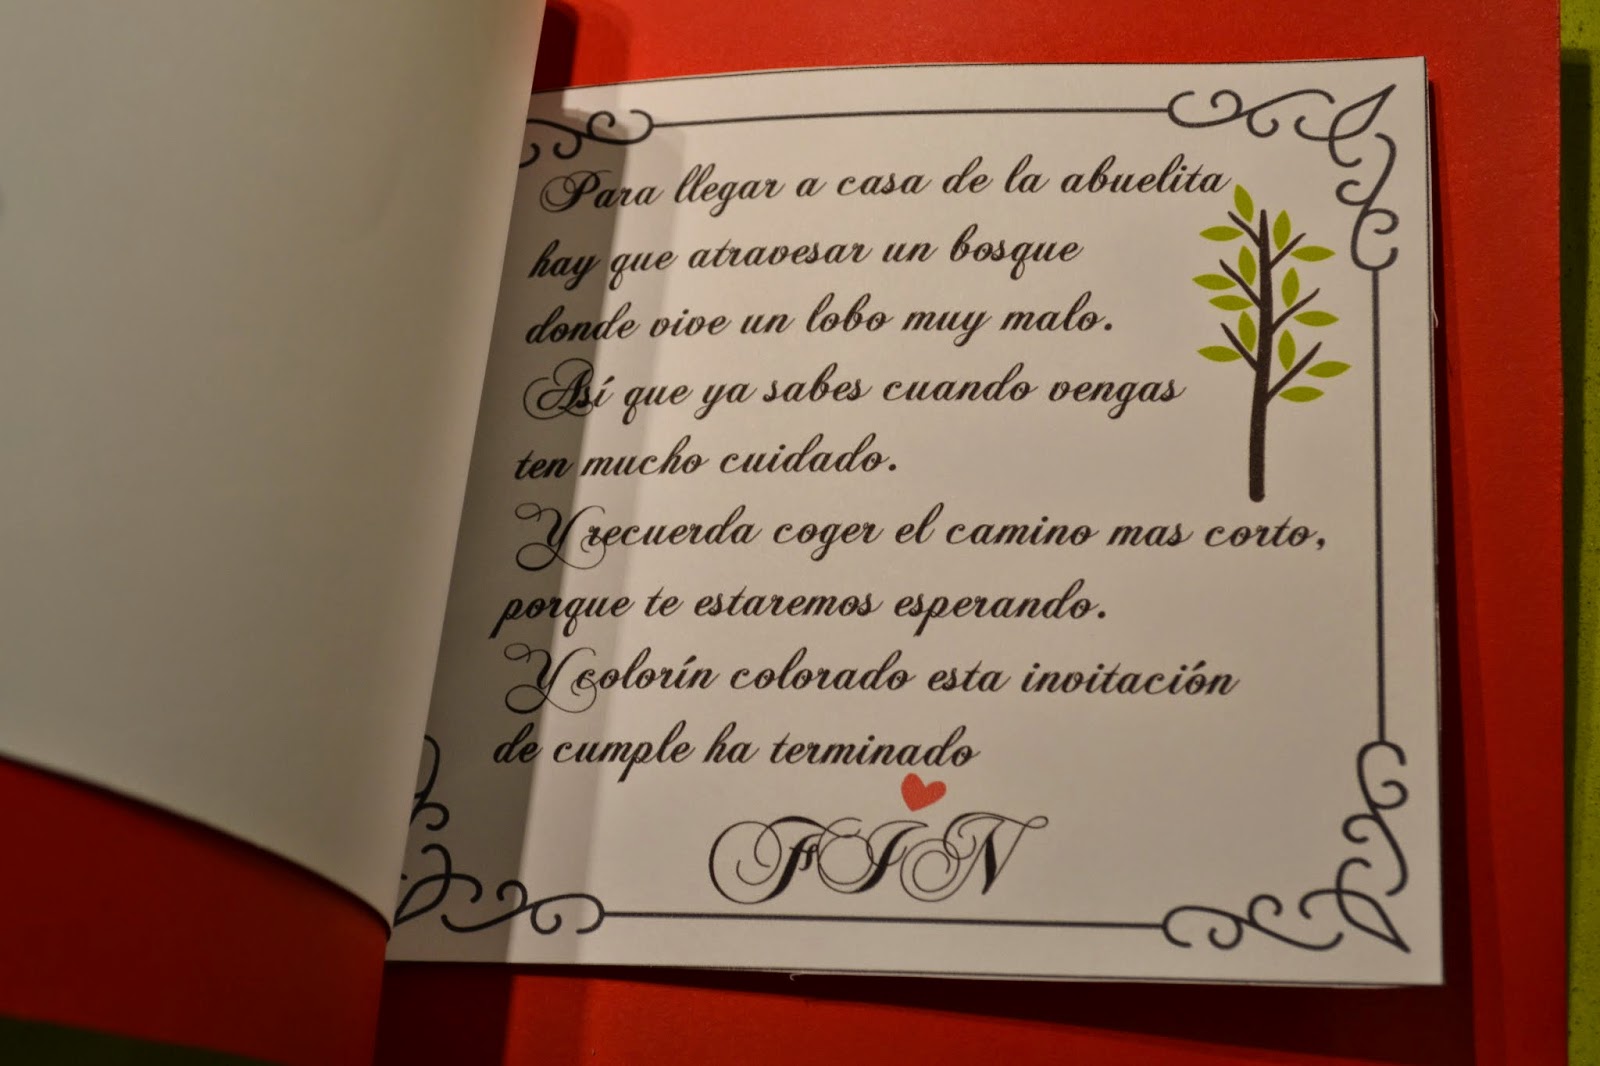 Para llegar a casa de la abuelita
hay que atravesar un bosque
donde vive un lobo muy malo.
Así que ya sabes cuando vengas
ten mucho cuidado.
Y recuerda coger el camino mas corto,
porque te estaremos esperando.
Y colorín colorado esta invitación
de cumple ha terminado
FIN